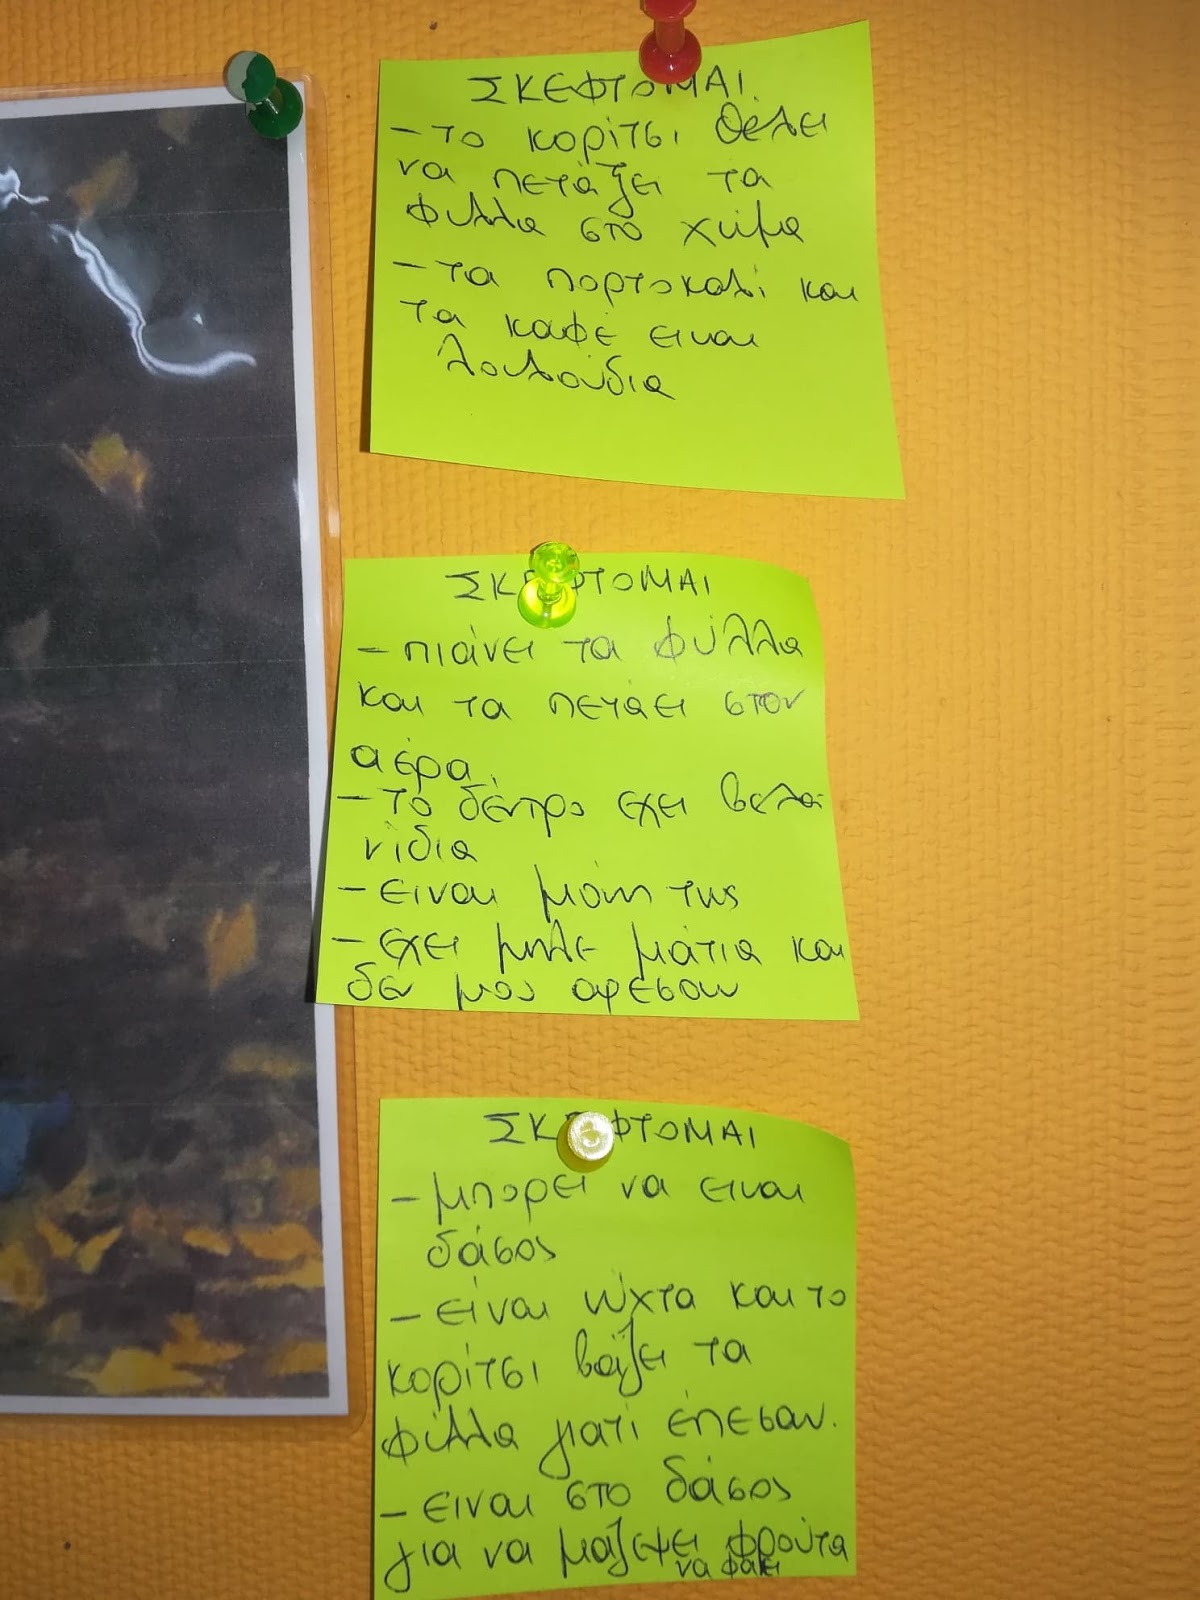 ΣΚΕΦΤΟΜΑΙ
- το κορίτσι θέλει
να πετάξει τα
φυλλα στο χώμα
- τα πορτοκαλί και
τα καφέ ειναι
λουλούδια
ΣΚΕΦΤΟΜΑΙ
- πιάνει τα φύλλα
και τα πετάει στον
αέρα.
- το δέντρο εχει βελα
νίδια
- ειναι μόνη της
- εχει μπλε μάτια και
δεν μου αρέσουν
ΣΚΕΦΤΟΜΑΙ
- μπορει να ειναι
δάσος
- είναι νύχτα και το
κορίτσι βάζει τα
φύλλα γιατί έπεσαν.
- είναι στο δάσος
για να μαζέψει φρούτα
να φάει